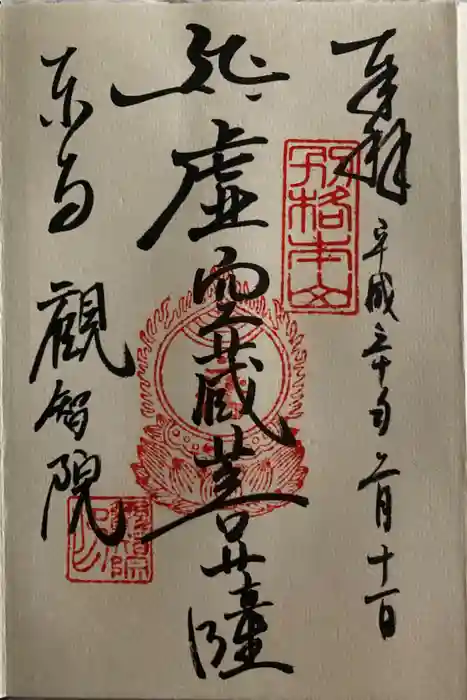 奉拝 平成三十年 月十一日
別格本山
虚空蔵菩薩
東寺 觀智院